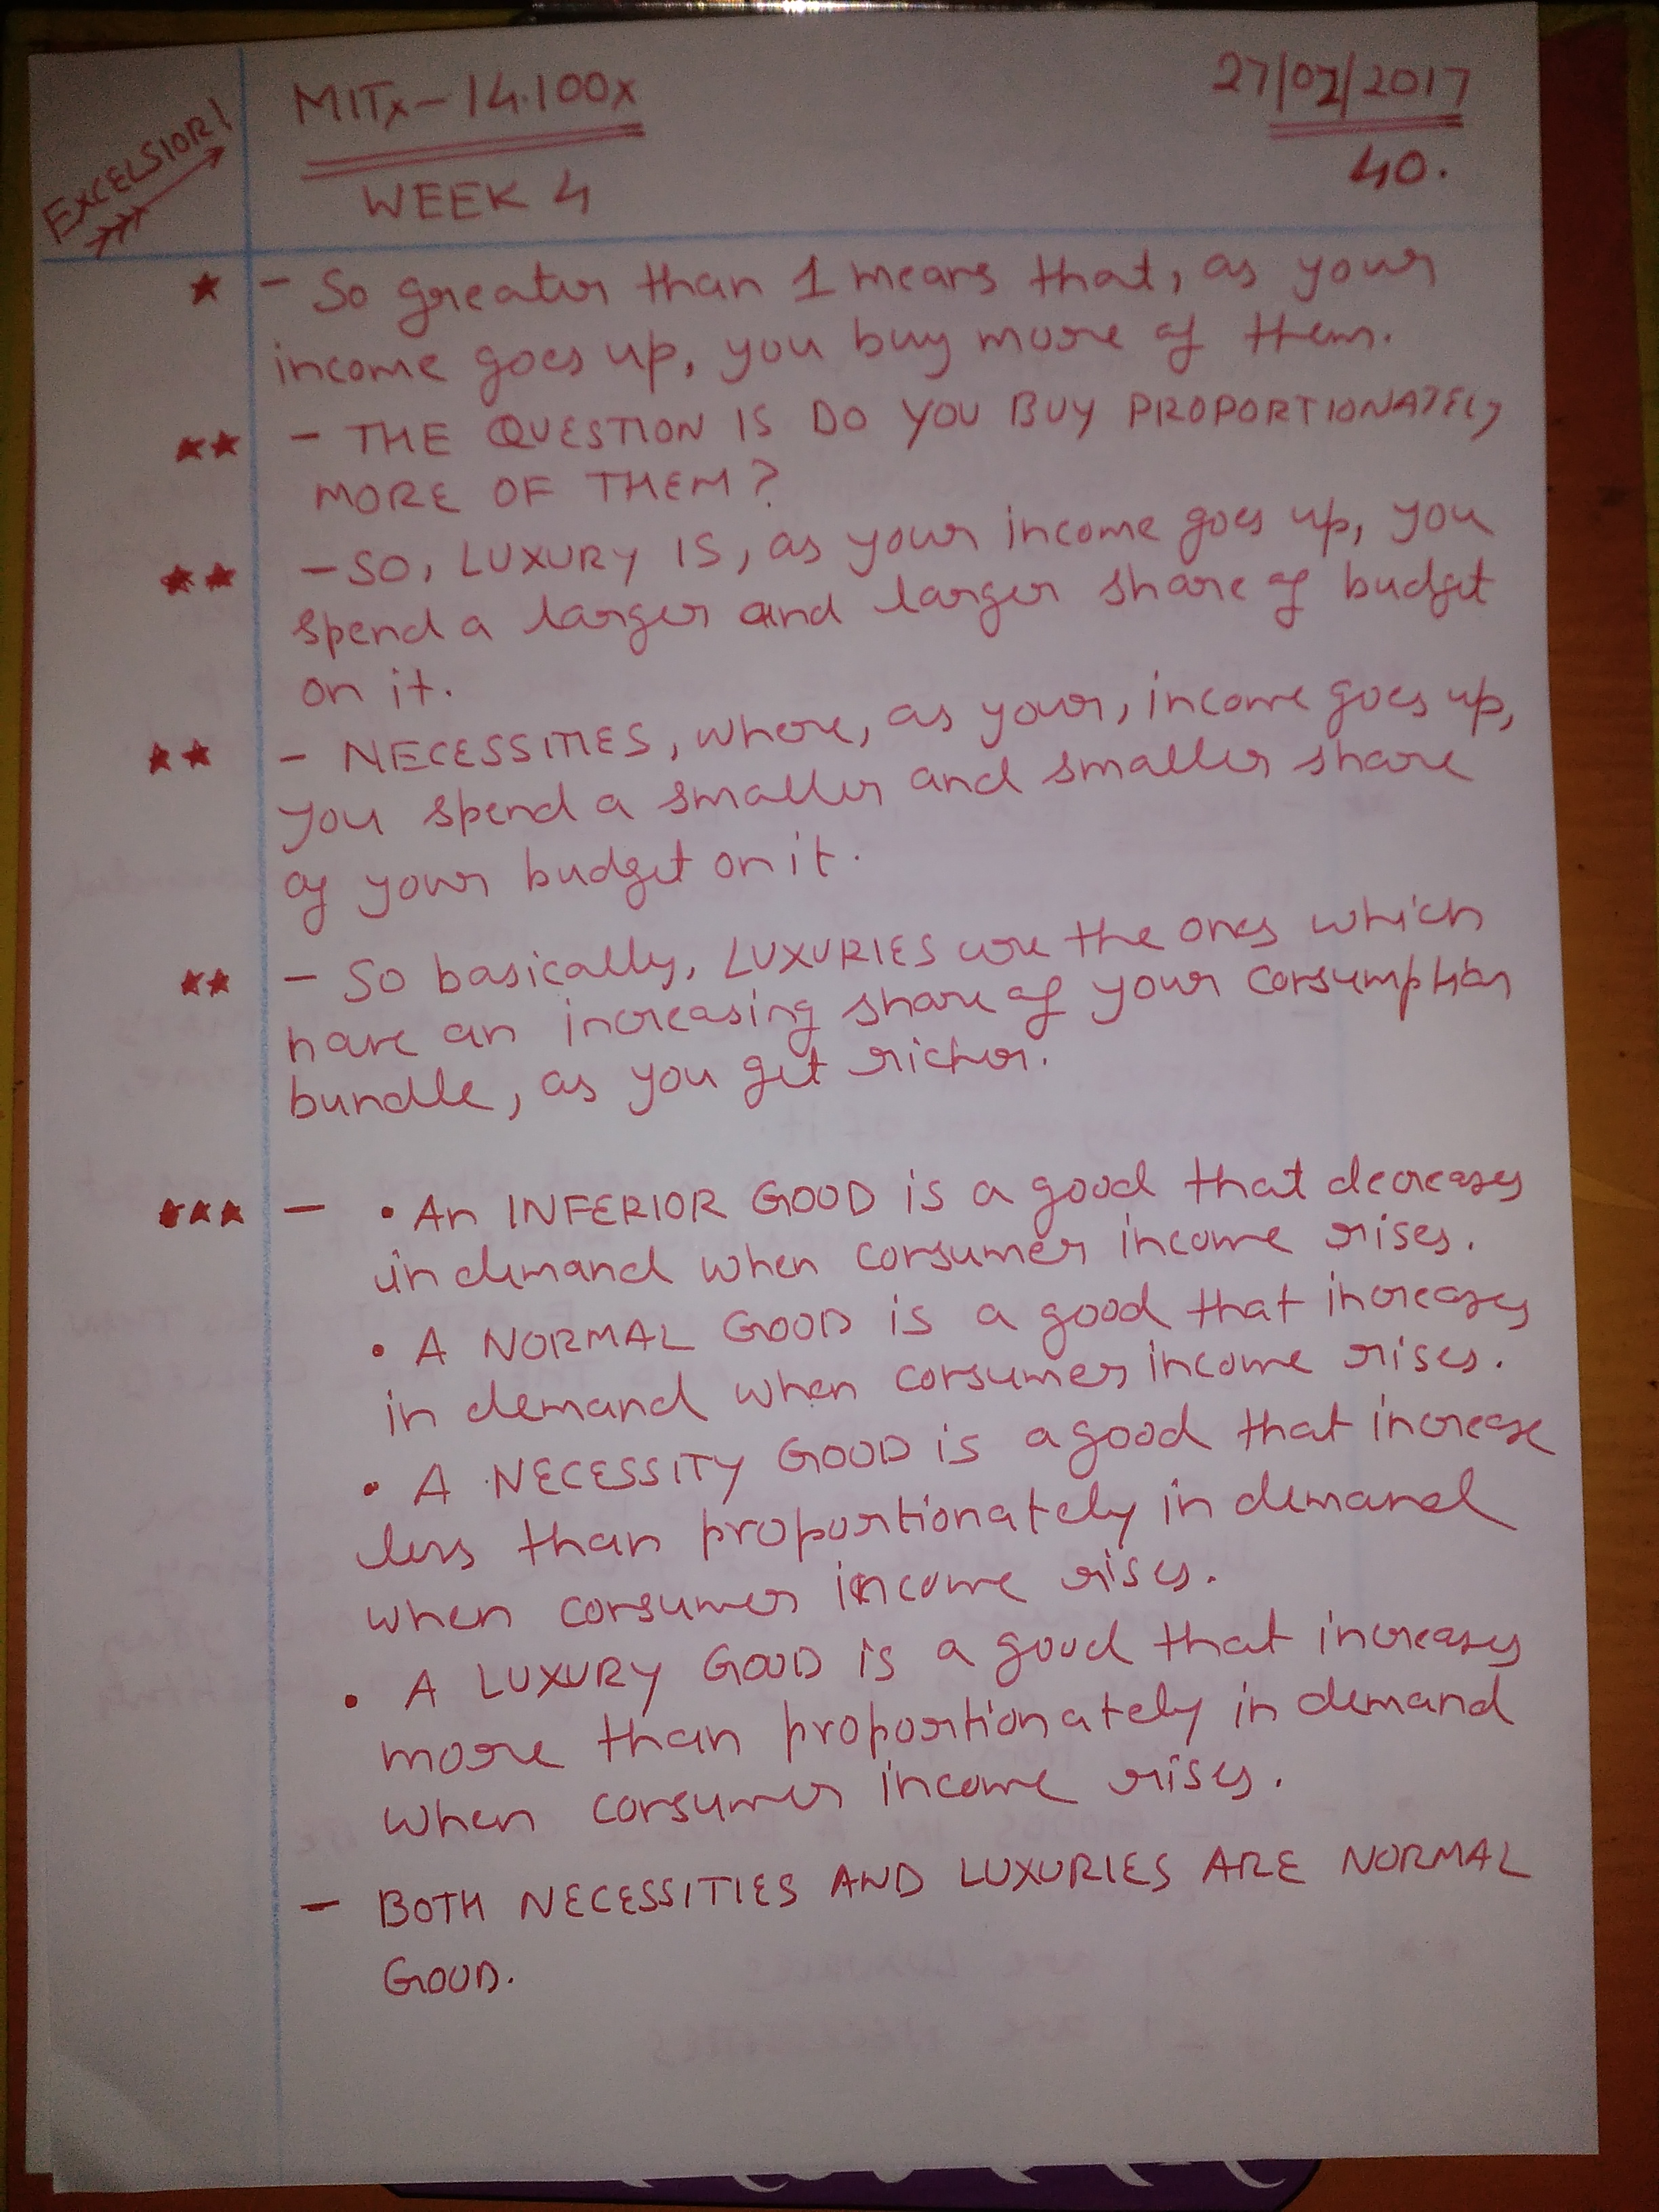 EXCELSIOR!
MITx-14.100x
27/02/2017
WEEK 4
40.
- So greater than 1 means that, as your
income goes up, you buy more of them.
- THE QUESTION IS DO YOU BUY PROPORTIONATELY
MORE OF THEM?
- SO, LUXURY IS, as your income goes up, you
spend a larger and larger share of budget
on it.
- NECESSITIES, where, as your, income goes up,
you spend a smaller and smaller share
of your budget on it.
- So basically, LUXURIES are the ones which
have an increasing share of your consumption
bundle, as you get richer.
- • An INFERIOR GOOD is a good that decreases
in demand when consumer income rises.
• A NORMAL GOOD is a good that increases
in demand when consumer income rises.
• A NECESSITY GOOD is a good that increase
less than proportionately in demand
when consumer income rises.
• A LUXURY GOOD is a good that increases
more than proportionately in demand
when consumer income rises.
- BOTH NECESSITIES AND LUXURIES ARE NORMAL
GOOD.